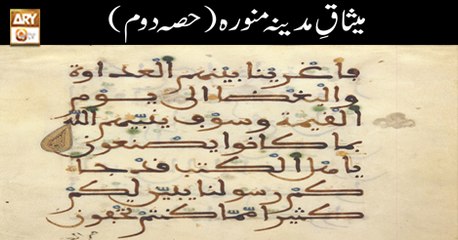 ARY
Qtv
میثاقِ مدینہ منورہ (حصہ دوم)
فأغرينا بينهم العداوة
والبغضا الى يوم
القيمة وسوف ينبيهم الله
بما كانوا يصنعون
ياهل الكتب قد جا
كم رسولنا يبين لكم
كثيرا مما كنتم تخفون